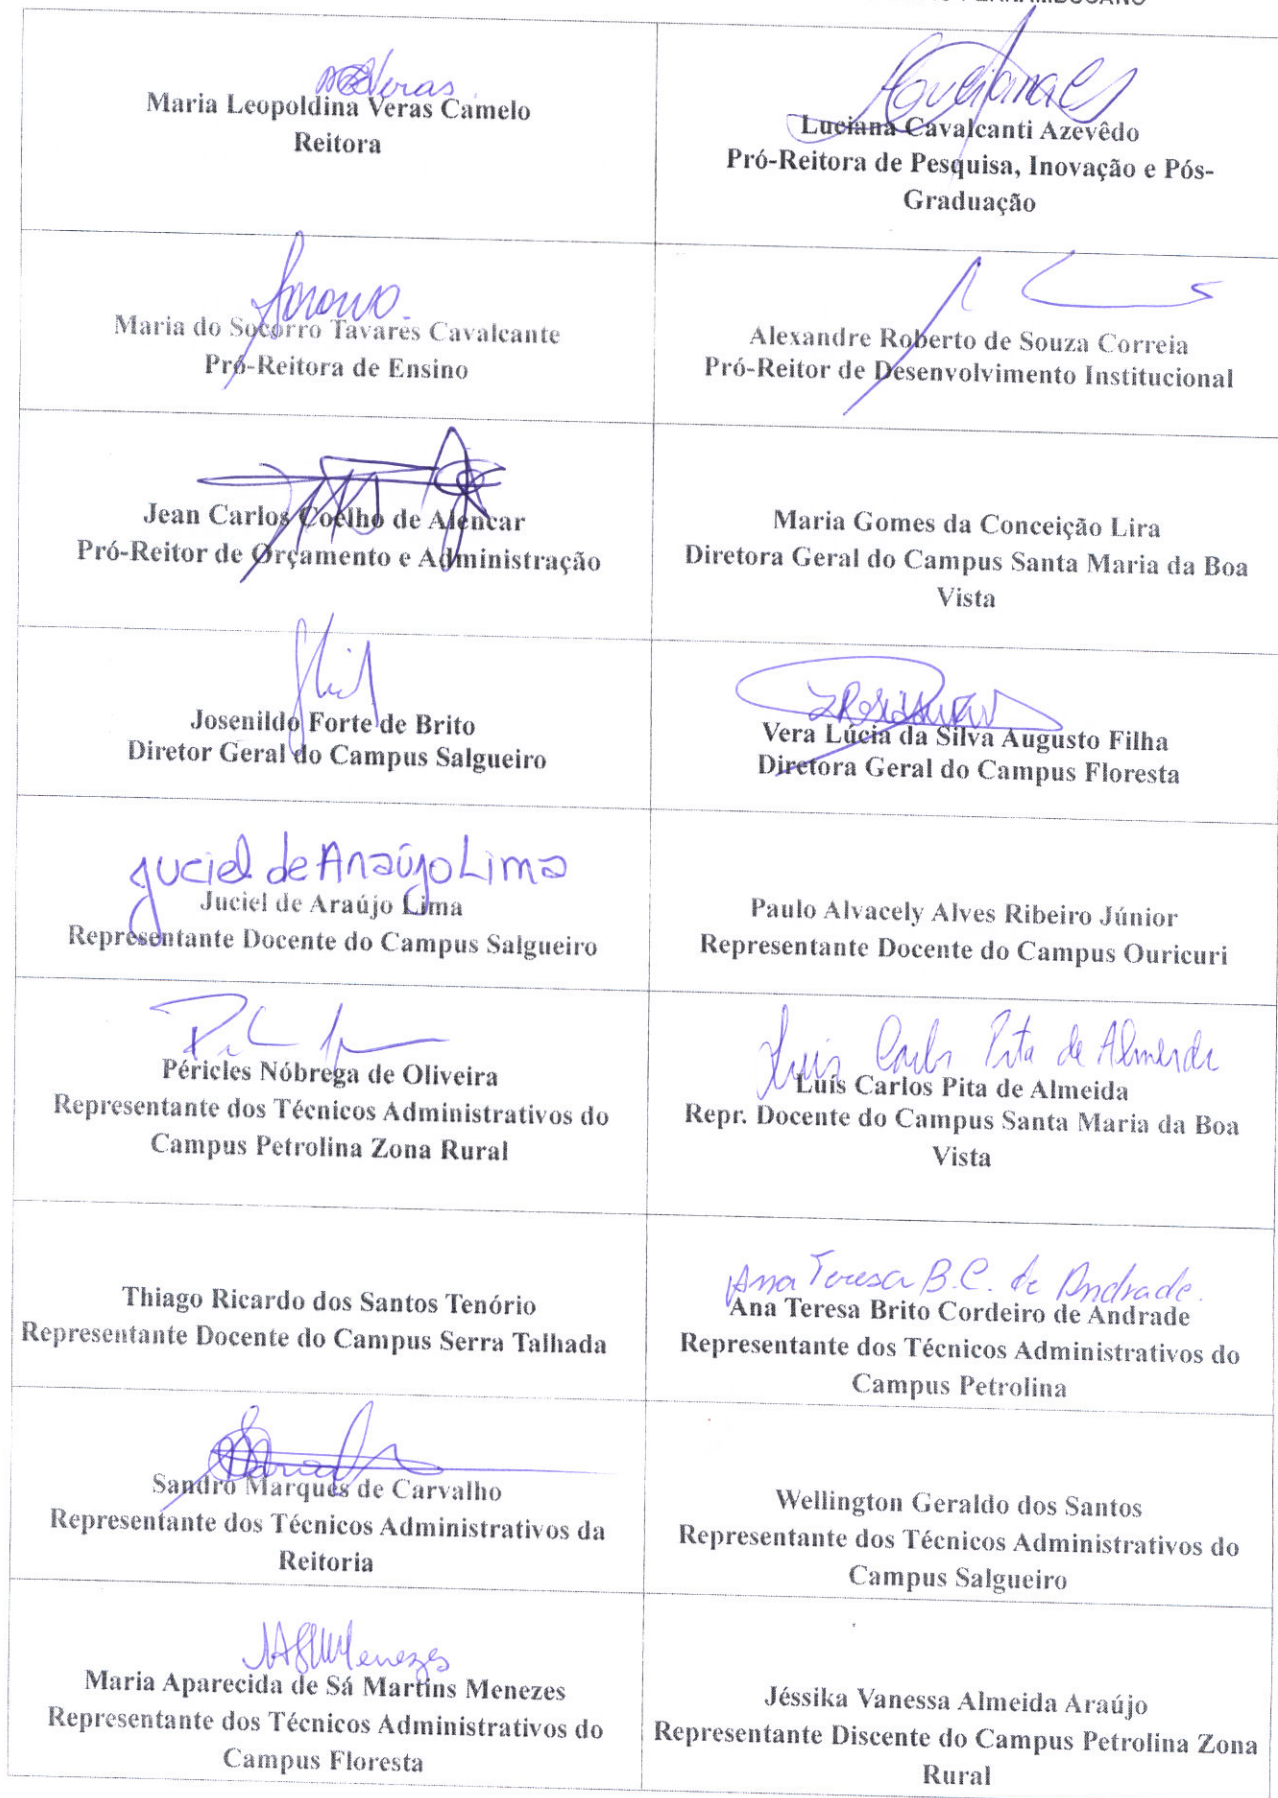 Veras
Maria Leopoldina Veras Camelo
Reitora
Luciana Cavalcanti Azevêdo
Pró-Reitora de Pesquisa, Inovação e Pós-
Graduação
Maria do Socorro Tavares Cavalcante
Pró-Reitora de Ensino
Alexandre Roberto de Souza Correia
Pró-Reitor de Desenvolvimento Institucional
Jean Carlos Coelho de Alencar
Pró-Reitor de Orçamento e Administração
Maria Gomes da Conceição Lira
Diretora Geral do Campus Santa Maria da Boa
Vista
Josenildo Forte de Brito
Diretor Geral do Campus Salgueiro
Vera Lúcia da Silva Augusto Filha
Diretora Geral do Campus Floresta
Juciel de Araújo Lima
Juciel de Araújo Lima
Representante Docente do Campus Salgueiro
Paulo Alvacely Alves Ribeiro Júnior
Representante Docente do Campus Ouricuri
Péricles Nóbrega de Oliveira
Representante dos Técnicos Administrativos do
Campus Petrolina Zona Rural
Luis Carlos Pita de Almeida
Luís Carlos Pita de Almeida
Repr. Docente do Campus Santa Maria da Boa
Vista
Thiago Ricardo dos Santos Tenório
Representante Docente do Campus Serra Talhada
Ana Teresa B.C. de Andrade.
Ana Teresa Brito Cordeiro de Andrade
Representante dos Técnicos Administrativos do
Campus Petrolina
Sandro Marques de Carvalho
Representante dos Técnicos Administrativos da
Reitoria
Wellington Geraldo dos Santos
Representante dos Técnicos Administrativos do
Campus Salgueiro
Menezes
Maria Aparecida de Sá Martins Menezes
Representante dos Técnicos Administrativos do
Campus Floresta
Jéssika Vanessa Almeida Araújo
Representante Discente do Campus Petrolina Zona
Rural